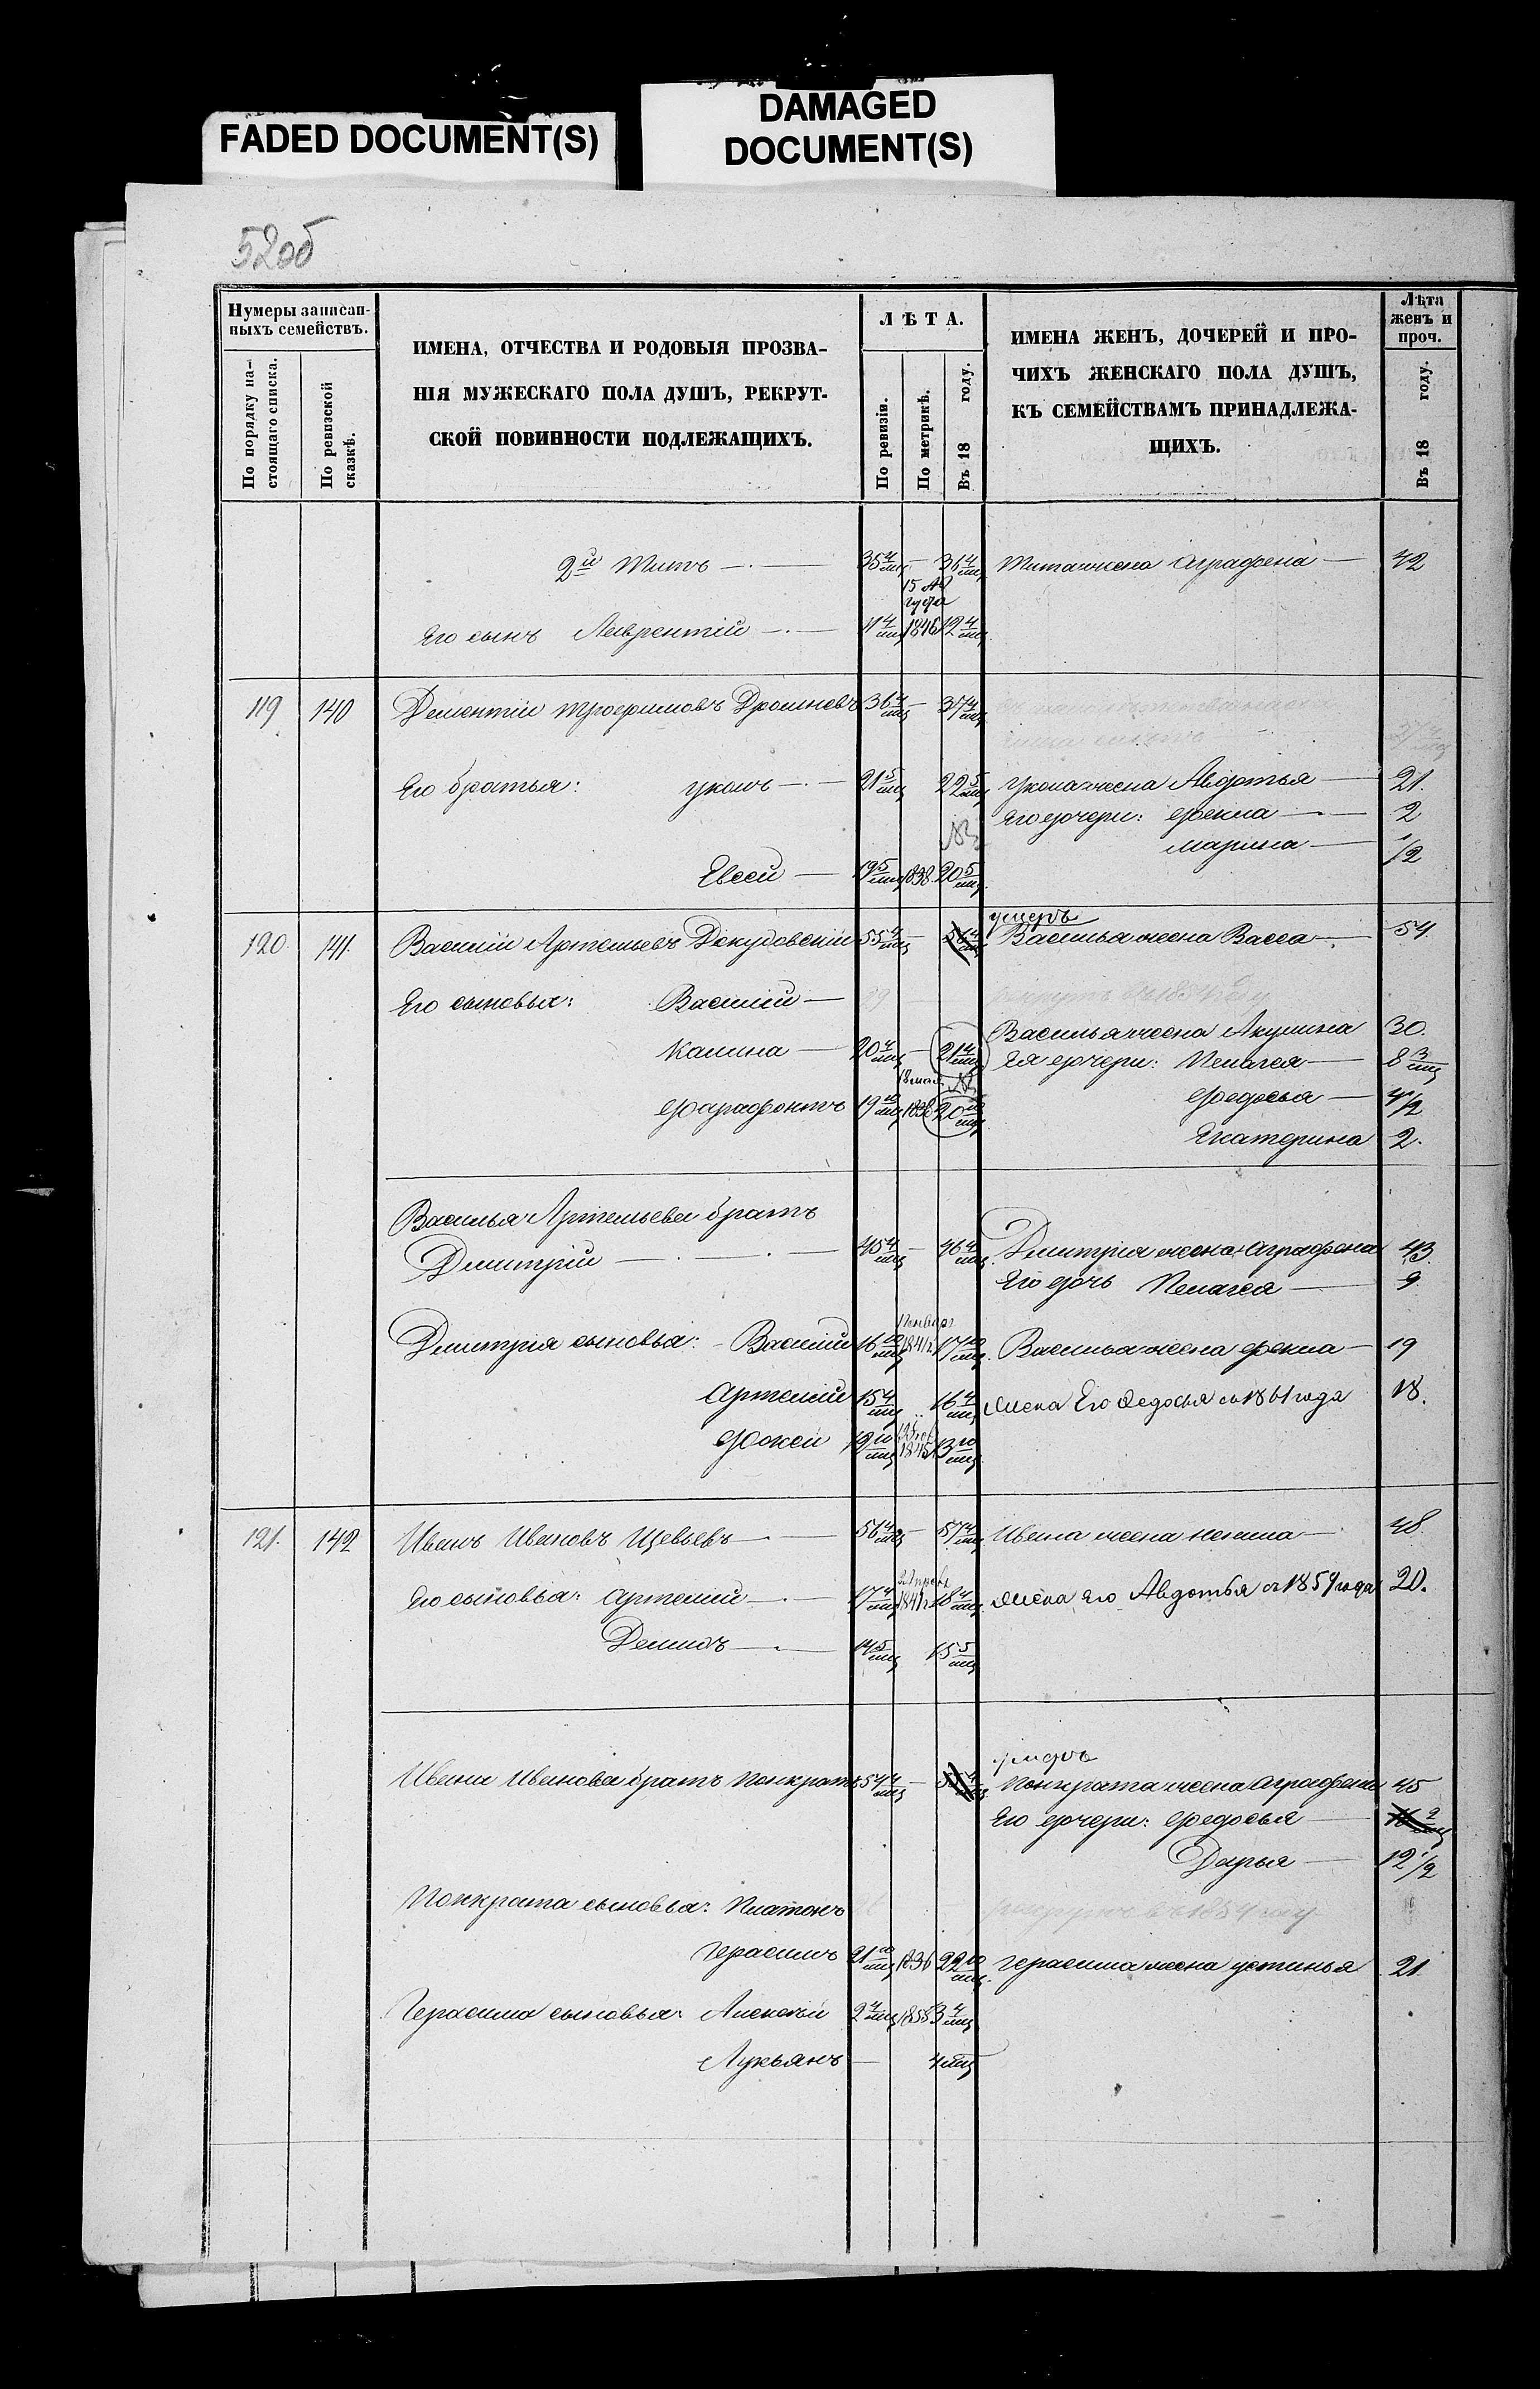 FADED DOCUMENT(S)
DAMAGED
DOCUMENT(S)
52об
Нумеры записан-
ныхъ семействъ.
По порядку на-
стоящаго списка.
По ревизской
сказкѣ.
ИМЕНА, ОТЧЕСТВА И РОДОВЫЯ ПРОЗВА-
НІЯ МУЖЕСКАГО ПОЛА ДУШЪ, РЕКРУТ-
СКОЙ ПОВИННОСТИ ПОДЛЕЖАЩИХЪ.
ЛѢТА.
По ревизіи.
По метрикѣ.
Въ 18 году.
ИМЕНА ЖЕНЪ, ДОЧЕРЕЙ И ПРО-
ЧИХЪ ЖЕНСКАГО ПОЛА ДУШЪ,
КЪ СЕМЕЙСТВАМЪ ПРИНАДЛЕЖА-
ЩИХЪ.
Лѣта
женъ и
проч.
Въ 18 году.
2й Титъ — 35 4/мц — 36 4/мц Тита жена Аграфена — 42
15 Ав
густа
Его сынъ Лаврентій — 11 4/мц 1846 12 4/мц
119 140 Дементій Трофимовъ 36 4/мц — 37 4/мц
37 4/мц
Его братья: 21 5/мц 22 5/мц жена Авдотья — 21.
Его дочери: Фекла — 2
Марина — 1/2
Евсей — 19 5/мц 1838 20 5/мц
умеръ
120 141 Василій Артемьевъ Докудовскій 55 4/мц — 56 4/мц Василья жена Васса — 54
Его сыновья: Василій — рекрутъ въ 1854 году
Василья жена Акулина 30.
Калина — 20 4/мц — 21 4/мц Ея дочери: Пелагея — 8 3/мц
Фарафонтъ 19 10/мц 1838 20 10/мц Федосья — 4 1/2
Екатерина 2.
Василья Артемьева братъ
Димитрій — 45 4/мц — 46 4/мц Димитрія жена Аграфена 43.
Его дочь Пелагея — 9
Димитрія сыновья: Василій 16 10/мц 1841 17 10/мц Василья жена Фекла — 19
Артемій 15 4/мц 16 4/мц Жена Его Федосья съ 1861 года 18.
Фокей 12 10/мц 1845 13 10/мц
121. 142 Иванъ Ивановъ 56 4/мц — 57 4/мц Ивана жена — 48
Его сыновья: Артемій — 17 4/мц 1841 18 4/мц Жена Его Авдотья съ 1859 года 20.
Демидъ — 14 5/мц 15 5/мц
умеръ
Ивана Иванова братъ Понкратъ 54 4/мц — 55 4/мц Понкрата жена Аграфена 45
Его дочери: Федосья — 16 2/мц
Дарья — 12 1/2
Понкрата сыновья: Платонъ рекрутъ въ 1854 году
Герасимъ 21 10/мц 1836 22 10/мц Герасима жена Устинья 21.
Герасима сыновья: Алексѣй 2 4/мц 1858 3 4/мц
Лукьянъ — 4 мц